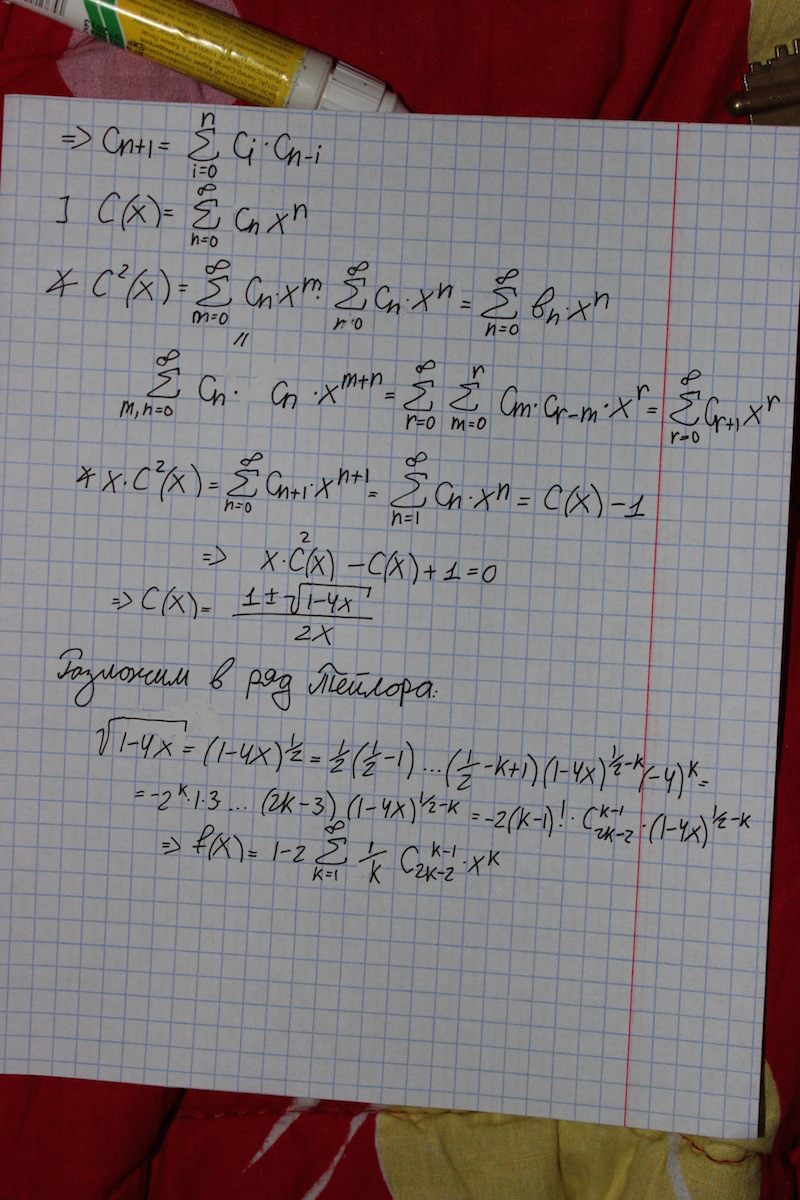 => Cn+1 = ∑_{i=0}^{n} Ci · Cn-i
] C(x) = ∑_{n=0}^{∞} Cn x^n
∡ C²(x) = ∑_{m=0}^{∞} Cn · x^m · ∑_{n=0}^{∞} Cn · x^n = ∑_{n=0}^{∞} bn · x^n
||
∑_{m,n=0}^{∞} Cn · Cn · x^{m+n} = ∑_{r=0}^{∞} ∑_{m=0}^{r} Cm · Cr-m · x^r = ∑_{r=0}^{∞} Cr+1 x^r
∡ x · C²(x) = ∑_{n=0}^{∞} Cn+1 · x^{n+1} = ∑_{n=1}^{∞} Cn · x^n = C(x) - 1
=> x · C²(x) - C(x) + 1 = 0
=> C(x) = (1 ± √(1-4x)) / 2x
Разложим в ряд Тейлора:
√(1-4x) = (1-4x)^{1/2} = 1/2 (1/2 - 1) ... (1/2 - k+1) (1-4x)^{1/2-k} (-4)^k =
= -2^k · 1 · 3 ... (2k-3) (1-4x)^{1/2-k} = -2(k-1)! · C_{2k-2}^{k-1} · (1-4x)^{1/2-k}
=> f(x) = 1-2 ∑_{k=1}^{∞} 1/k C_{2k-2}^{k-1} · x^k